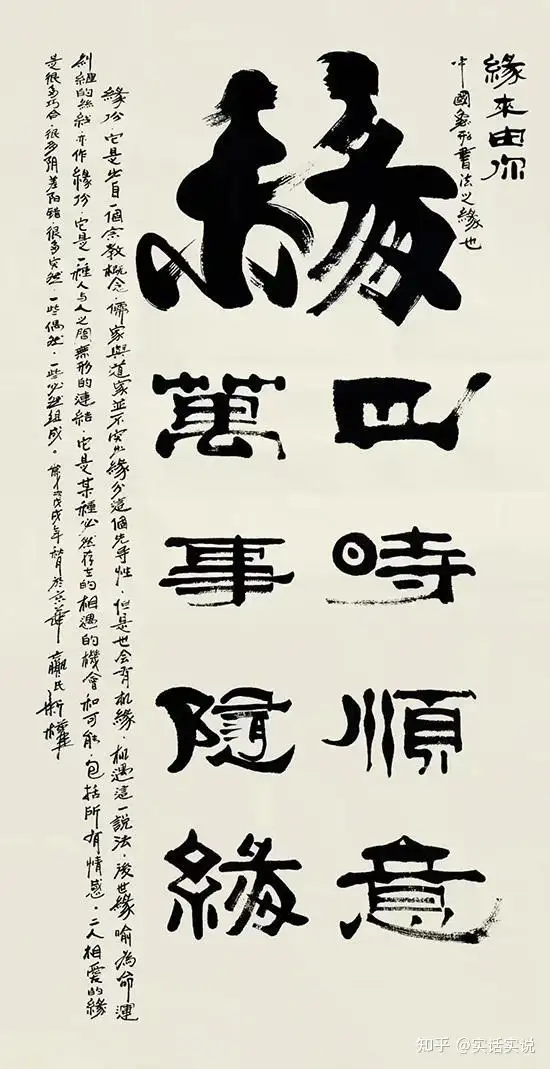 緣來由你
中國象形書法之緣也
緣
四時順意
萬事隨緣
緣份，它是出自一個宗教概念，儒家與道家並不突出緣分這個先手性，但是也会有机緣、机遇這一說法，後世緣喻為命運
糾纏的絲线，亦作緣份，它是一種人与人之間無形的連結，它是某種必然存在的相遇的機會和可能，包括所有情感。二人相愛的緣
是很多巧合，很多阴差阳错，很多突然，一些偶然，一些必然組成。戊戌年秋月於京華
知乎 @实话实说